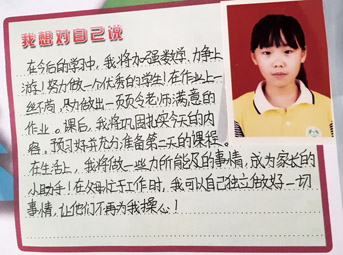 我想对自己说
在今后的学习中，我将加强数学，力争上
游！努力做一个优秀的学生！在作业上一
丝不苟，努力做出一页页令老师满意的
作业。课后，我将巩固扎实今天的内
容，预习好并充分准备第二天的课程。
在生活上，我将做一些力所能及的事情，成为家长的
小助手！在父母忙于工作时，我可以自己独立做好一切
事情，让他们不再为我操心！